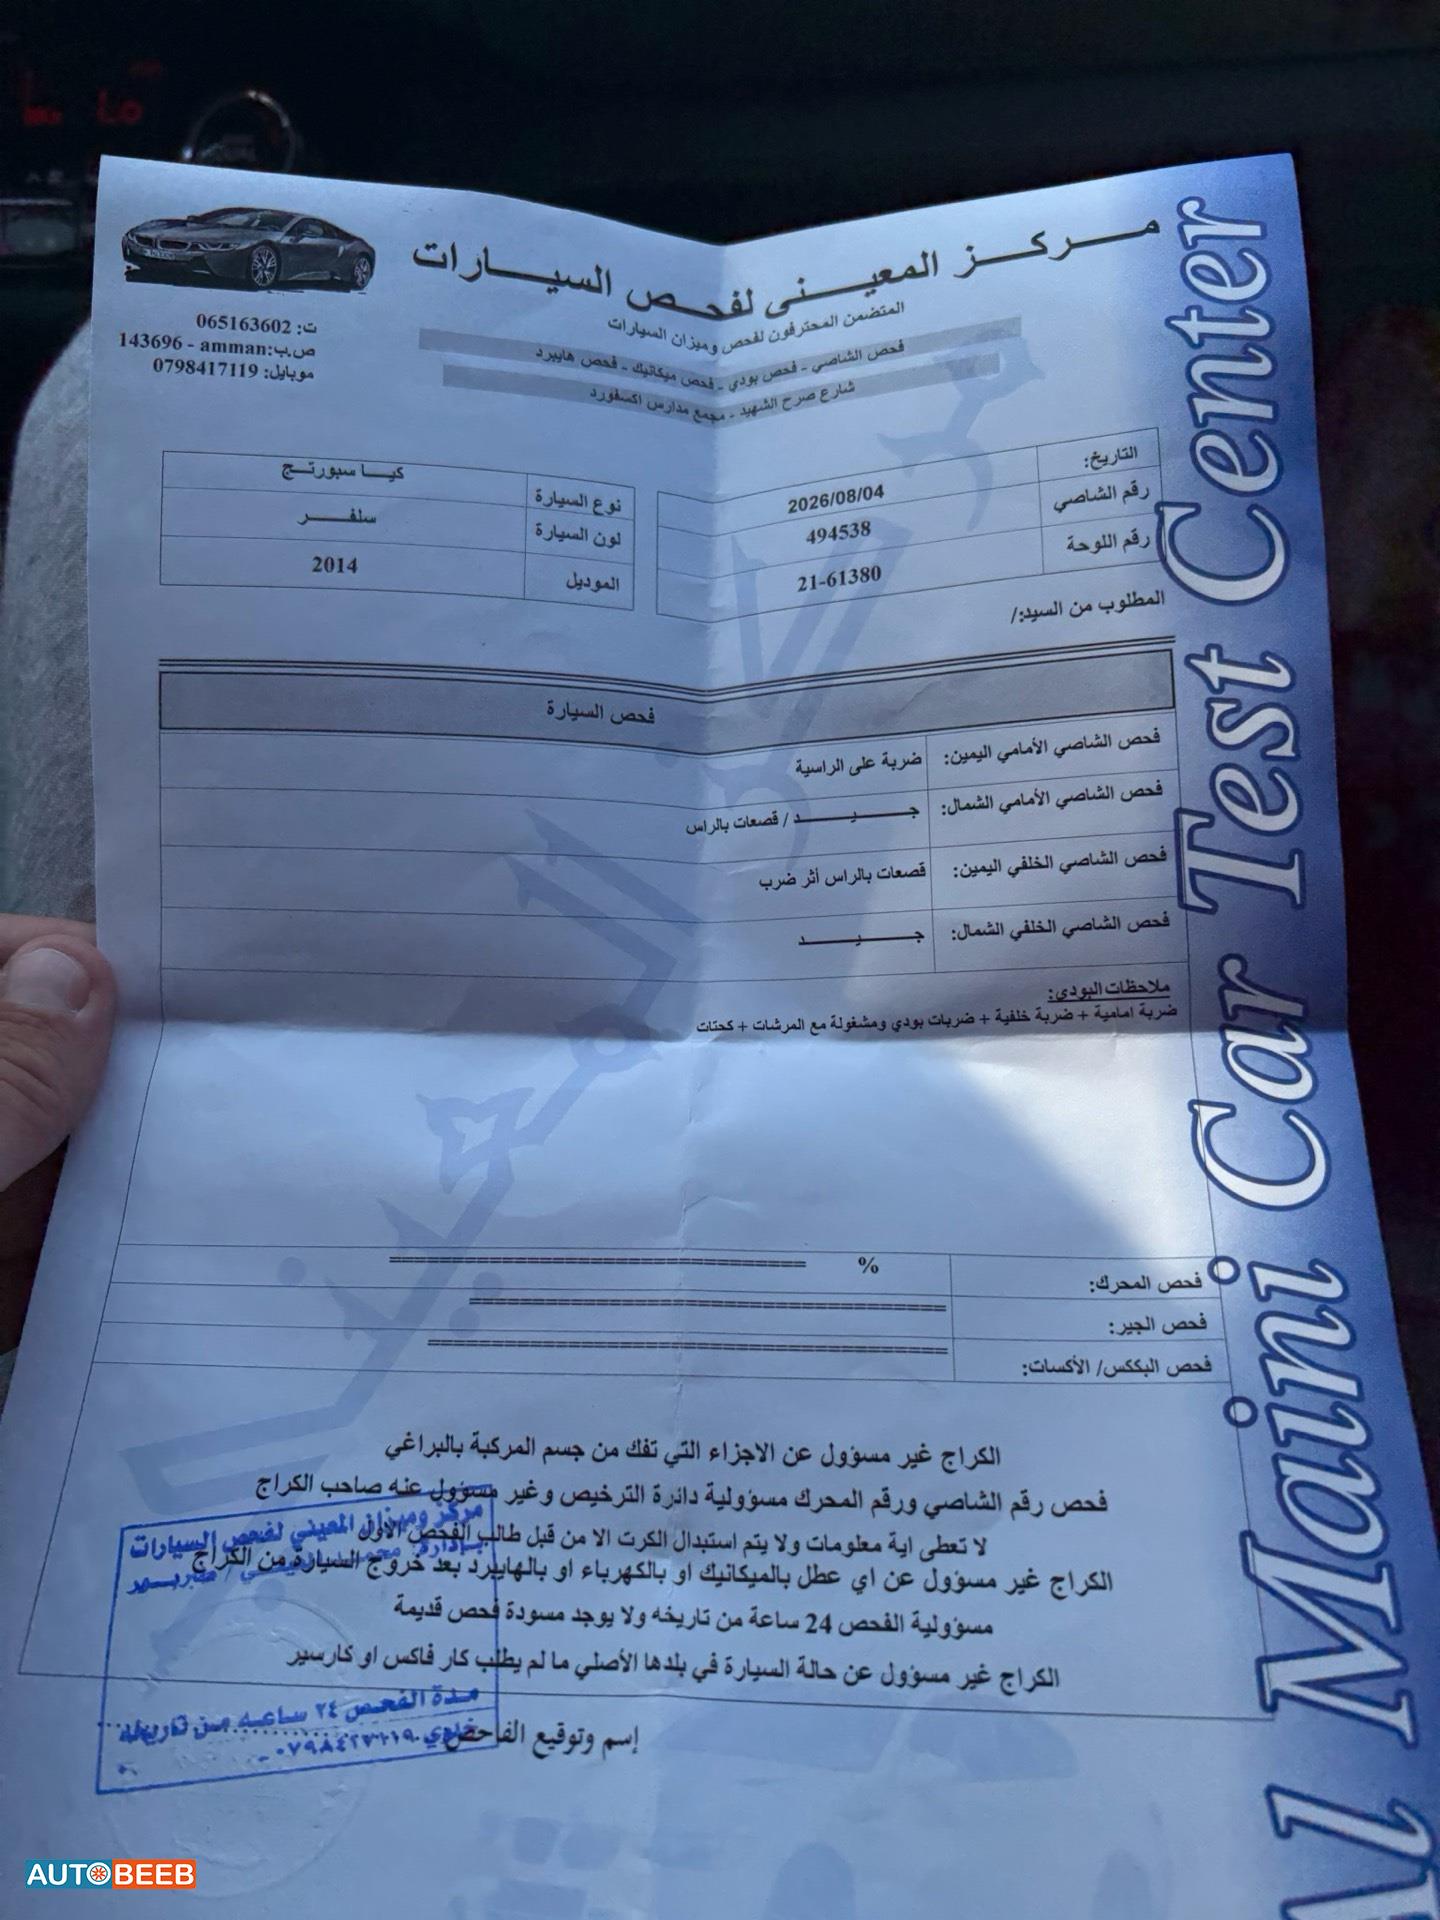 مركز المعيني لفحص السيارات
المتضمن المحترفون لفحص وميزان السيارات
فحص الشاصي - فحص بودي - فحص ميكانيك - فحص هايبرد
شارع صرح الشهيد - مجمع مدارس اكسفورد
ت: 065163602
ص.ب: 143696 - amman
موبايل: 0798417119
التاريخ: 2026/08/04
رقم الشاصي 494538
رقم اللوحة 21-61380
نوع السيارة كيا سبورتج
لون السيارة سلفر
الموديل 2014
المطلوب من السيد:/
فحص السيارة
فحص الشاصي الأمامي اليمين: ضربة على الراسية
فحص الشاصي الأمامي الشمال: جيد / قصعات بالراس
فحص الشاصي الخلفي اليمين: قصعات بالراس أثر ضرب
فحص الشاصي الخلفي الشمال: جيد
ملاحظات البودي:
ضربة امامية + ضربة خلفية + ضربات بودي ومشغولة مع المرشات + كحتات
فحص المحرك: %
فحص الجير:
فحص البكس/ الأكسات:
الكراج غير مسؤول عن الاجزاء التي تفك من جسم المركبة بالبراغي
فحص رقم الشاصي ورقم المحرك مسؤولية دائرة الترخيص وغير مسؤول عنه صاحب الكراج
لا تعطى اية معلومات ولا يتم استبدال الكرت الا من قبل طالب الفحص الاول
الكراج غير مسؤول عن اي عطل بالميكانيك او بالكهرباء او بالهايبرد بعد خروج السيارة من الكراج
مسؤولية الفحص 24 ساعة من تاريخه ولا يوجد مسودة فحص قديمة
الكراج غير مسؤول عن حالة السيارة في بلدها الأصلي ما لم يطلب كار فاكس او كارسير
إسم وتوقيع الفاحص
مركز وميزان المعيني لفحص السيارات
مدة الفحص ٢٤ ساعه من تاريخه
Al Maini Car Test Center
AUTOBEEB